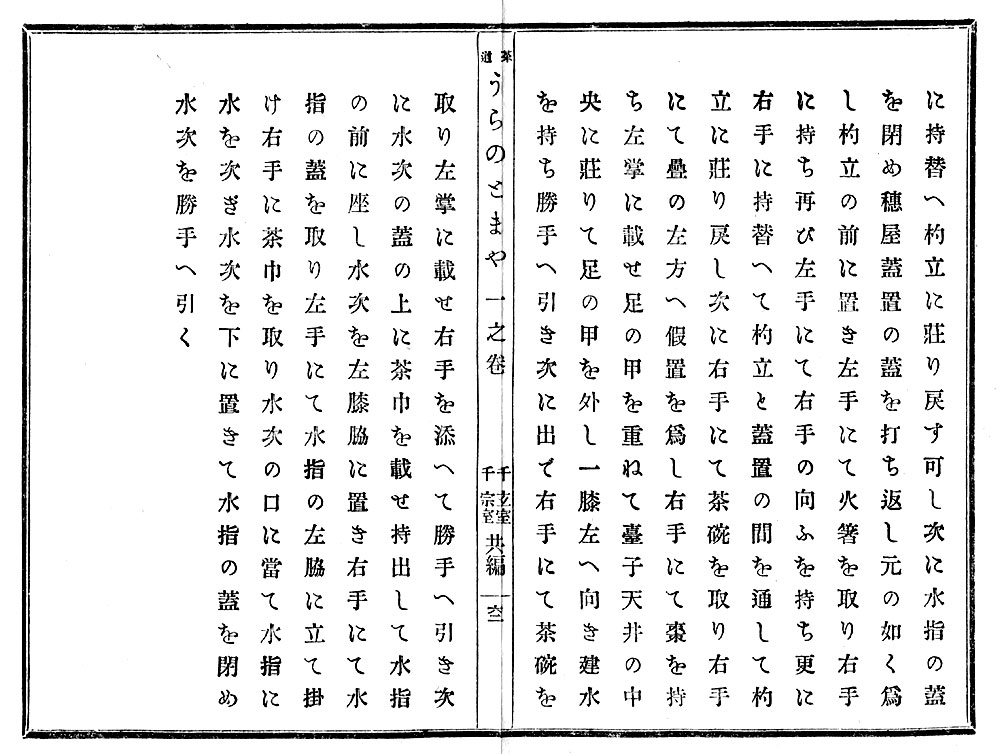 に持替へ杓立に莊り戻す可し次に水指の蓋
を閉め穗屋蓋置の蓋を打ち返し元の如く爲
し杓立の前に置き左手にて火箸を取り右手
に持ち再び左手にて右手の向ふを持ち更に
右手に持替へて杓立と蓋置の間を通して杓
立に莊り戻し次に右手にて茶碗を取り右手
にて疊の左方へ假置を爲し右手にて棗を持
ち左掌に載せ足の甲を重ねて臺子天井の中
央に莊りて足の甲を外し一膝左へ向き建水
を持ち勝手へ引き次に出で右手にて茶碗を
茶道 うらのとまや 一之卷 千玄室 千宗室 共編 六二
取り左掌に載せ右手を添へて勝手へ引き次
に水次の蓋の上に茶巾を載せ持出して水指
の前に座し水次を左膝脇に置き右手にて水
指の蓋を取り左手にて水指の左脇に立て掛
け右手に茶巾を取り水次の口に當て水指に
水を次ぎ水次を下に置きて水指の蓋を閉め
水次を勝手へ引く